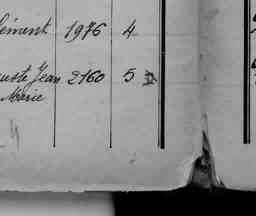 lément 1976 4
uste Jean 2160 5
Marie